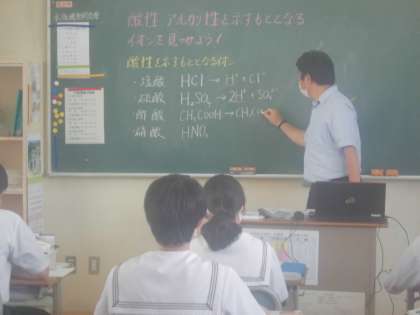 酸性 アルカリ性を示すもととなる
イオンを見つけよう!
酸性を示すもととなるイオン
・塩酸 HCl → H⁺ + Cl⁻
・硫酸 H₂SO₄ → 2H⁺ + SO₄²⁻
酢酸 CH₃COOH → CH₃C
・硝酸 HNO₃